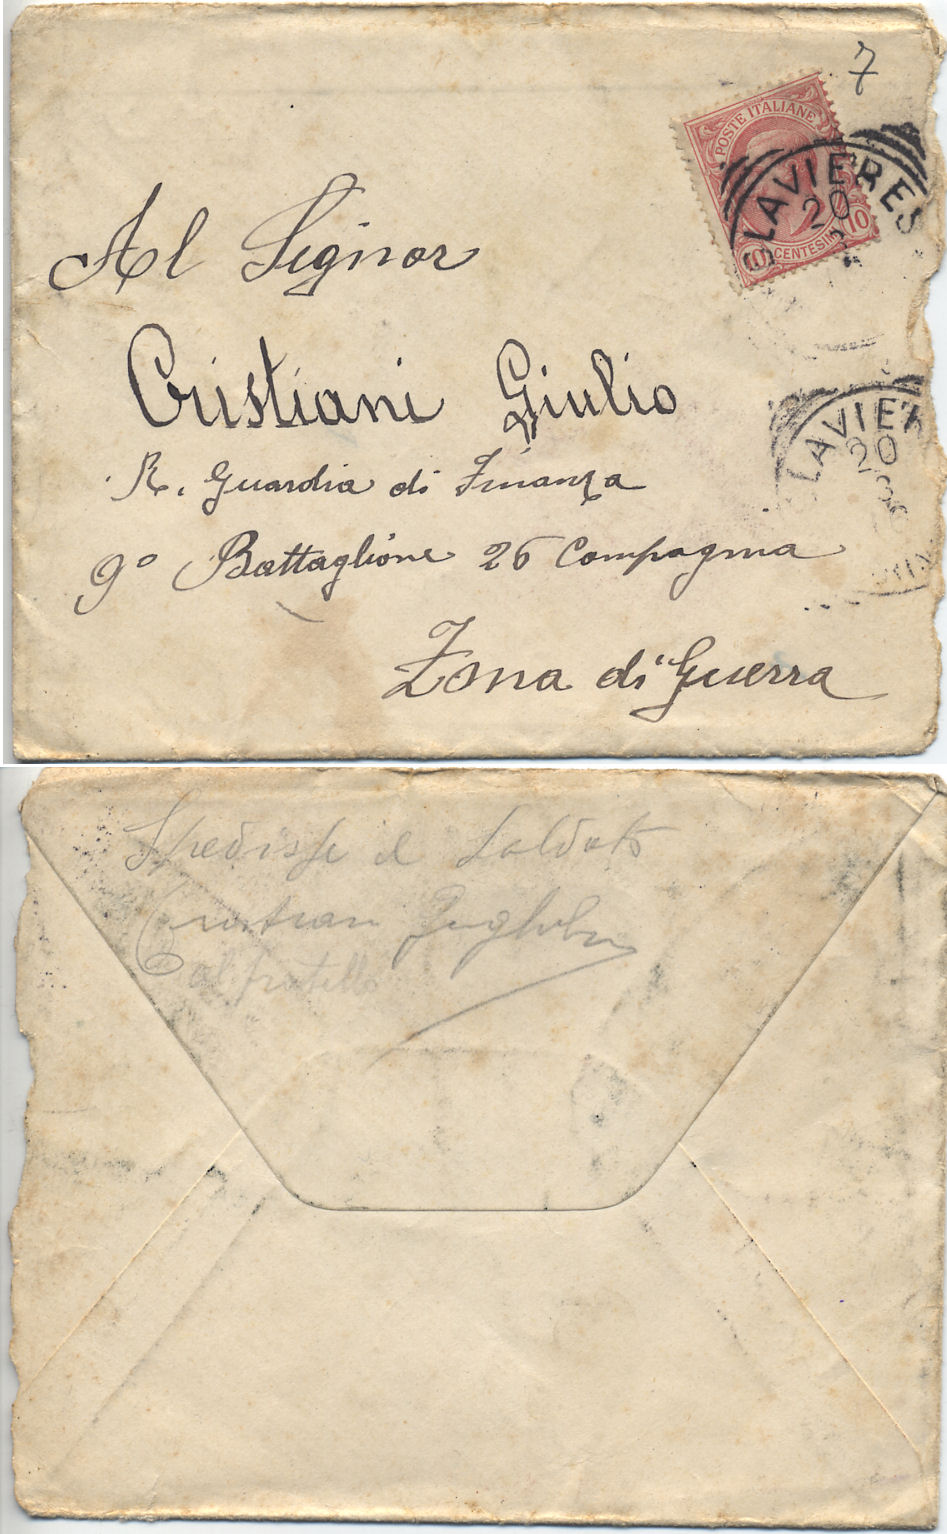 7
POSTE ITALIANE
10 CENTESIMI 10
CLAVIERES
20
3
Al Signor
Cristiani Giulio
LAVIER
20
3
R. Guardia di Finanza
9° Battaglione 26 Compagnia
Zona di Guerra
Spedisse il Soldato
Cristiani
al fratello